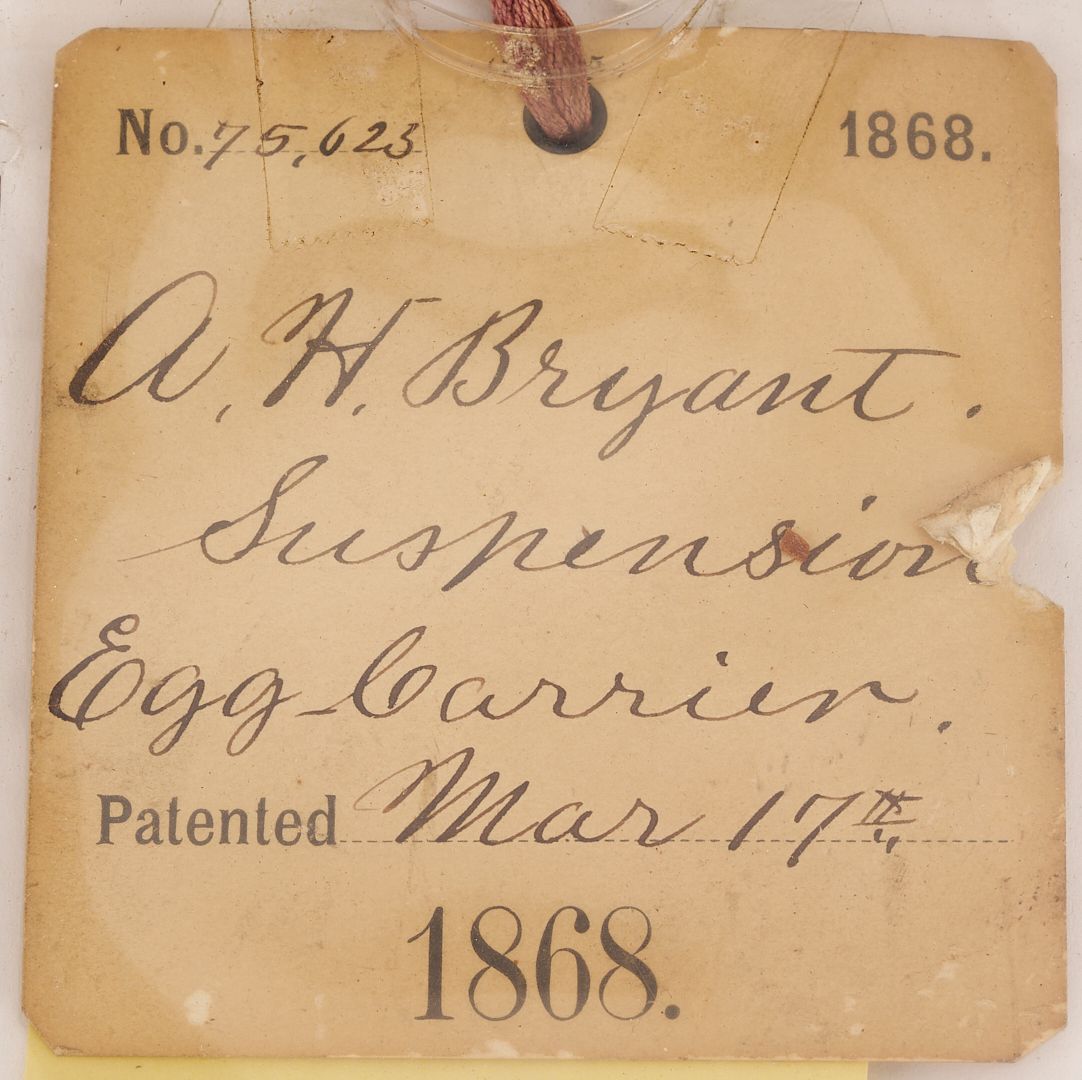 No. 75,623 1868.
A. H. Bryant.
Suspension
Egg-Carrier.
Patented Mar 17th.
1868.